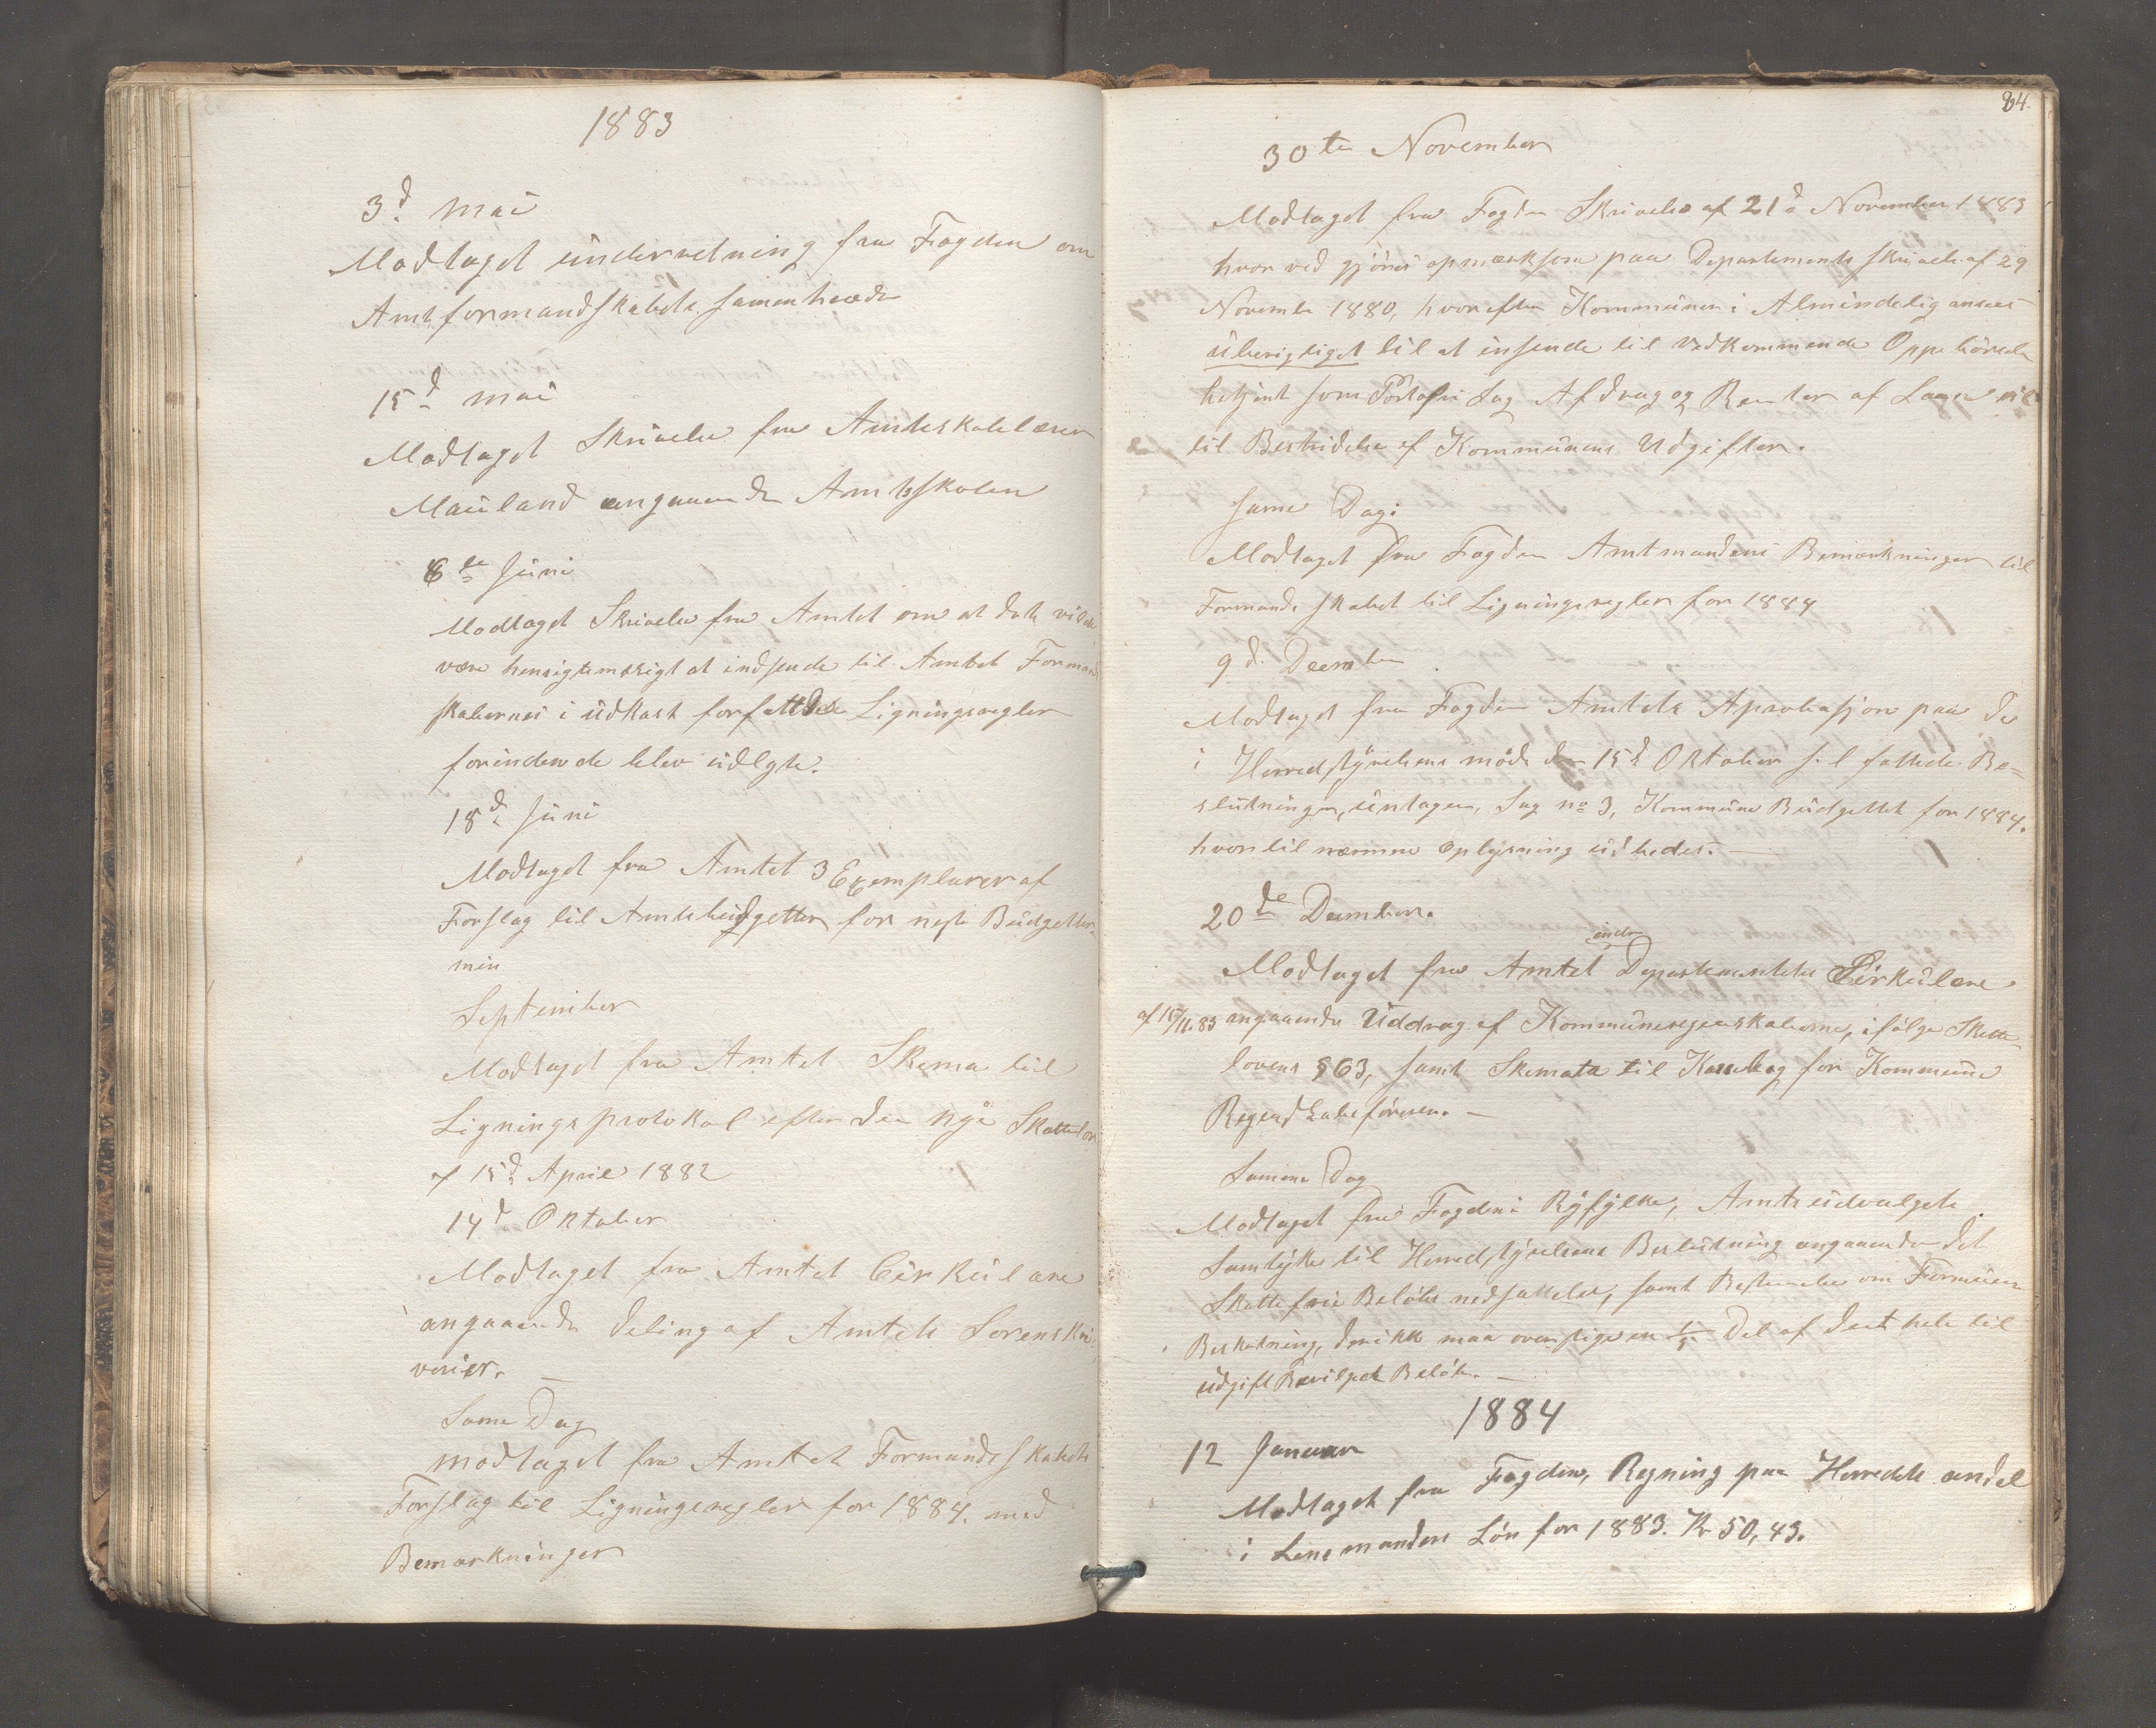 1883
3d. mai
Modtaget underretning fra Fogden om
Amtformandskabets samentræde
15d mai
Modtaget Skrivelse fra Amtskolelærer
Mauland angaaende Amtsskolen
6te Juni
Modtaget Skrivelse fra Amtet om at dette vilde
være hensigtsmæsigt at indsende til Amtet Formand
skabernes i üdkast forfattede Ligningsregler
forinden de blev üdlgte.
18d Juni
Modtaget fra Amtet 3 Exemplarer af
Forslag til Amtsbudgetter for neste Büdgetter
min
September
Modtaget fra Amtet Skema til
Ligningsprotokol efter den nye Skattelov
af 15d April 1882
14d Oktober
Modtaget fra Amtet Cirkülære
angaaende deling af Amtets Sorenskri
verier.
Same Dag
modtaget fra Amtet Formandsskabets
Forslag til Ligningsregler for 1884. med
Bemærkninger
64.
30te November
Modtaget fra Fogden Skrivelse af 21d November 1883
hvor ved gjöres opmærksom paa Departements skrivelse af 29
November 1880, hvorefter Kommünen i Almindelig ansees
überigtiget til at insende til vedkommende Oppebörsels
betjent som Portofri Sag Afdrag og Renter af Laan
til Bestridelse af Kommünens Udgifter.
same Dag:
Modtaget fra Fogden Amtmandens Bemærkninger til
Formandsskabet til Ligningsregler for 1884
9d. Deember
Modtaget fra Fogden Amtets Aprobasjon paa de
i Herredstyrelsens möde den 15d Oktober s.l fattede Be=
slütninger, üntagen, Sag no 3, Kommüne Büdgettet for 1884.
hvortil næmere Oplysning üdbedes.
20de Deember.
indre
Modtaget fra Amtet Departementets Cirkülære
af 15/11.83 angaaende Üddrag af Kommüneregnskaberne, ifölge Skatte
lovens § 63, samt Skemata til Kassebog for Kommüne
Regnskabsföreren.
Samme Dag
Modtaget fra Fogden i Ryfylke, Amtsüdvalgets
Samtykke til Herredstyrelsens Beslütning angaaende det
Skattefrie Belöbs nedsættelse, samt Bestemelse om Formües
Beskatning, der ikke maa overstige en 1/5 Del af det hele til
üdgift Bevilget Belöb.
1884
12 Januar
Modtaget fra Fogden, Regning paa Herredets andel
i Lensmandens Lön for 1883. Kr 50,43.